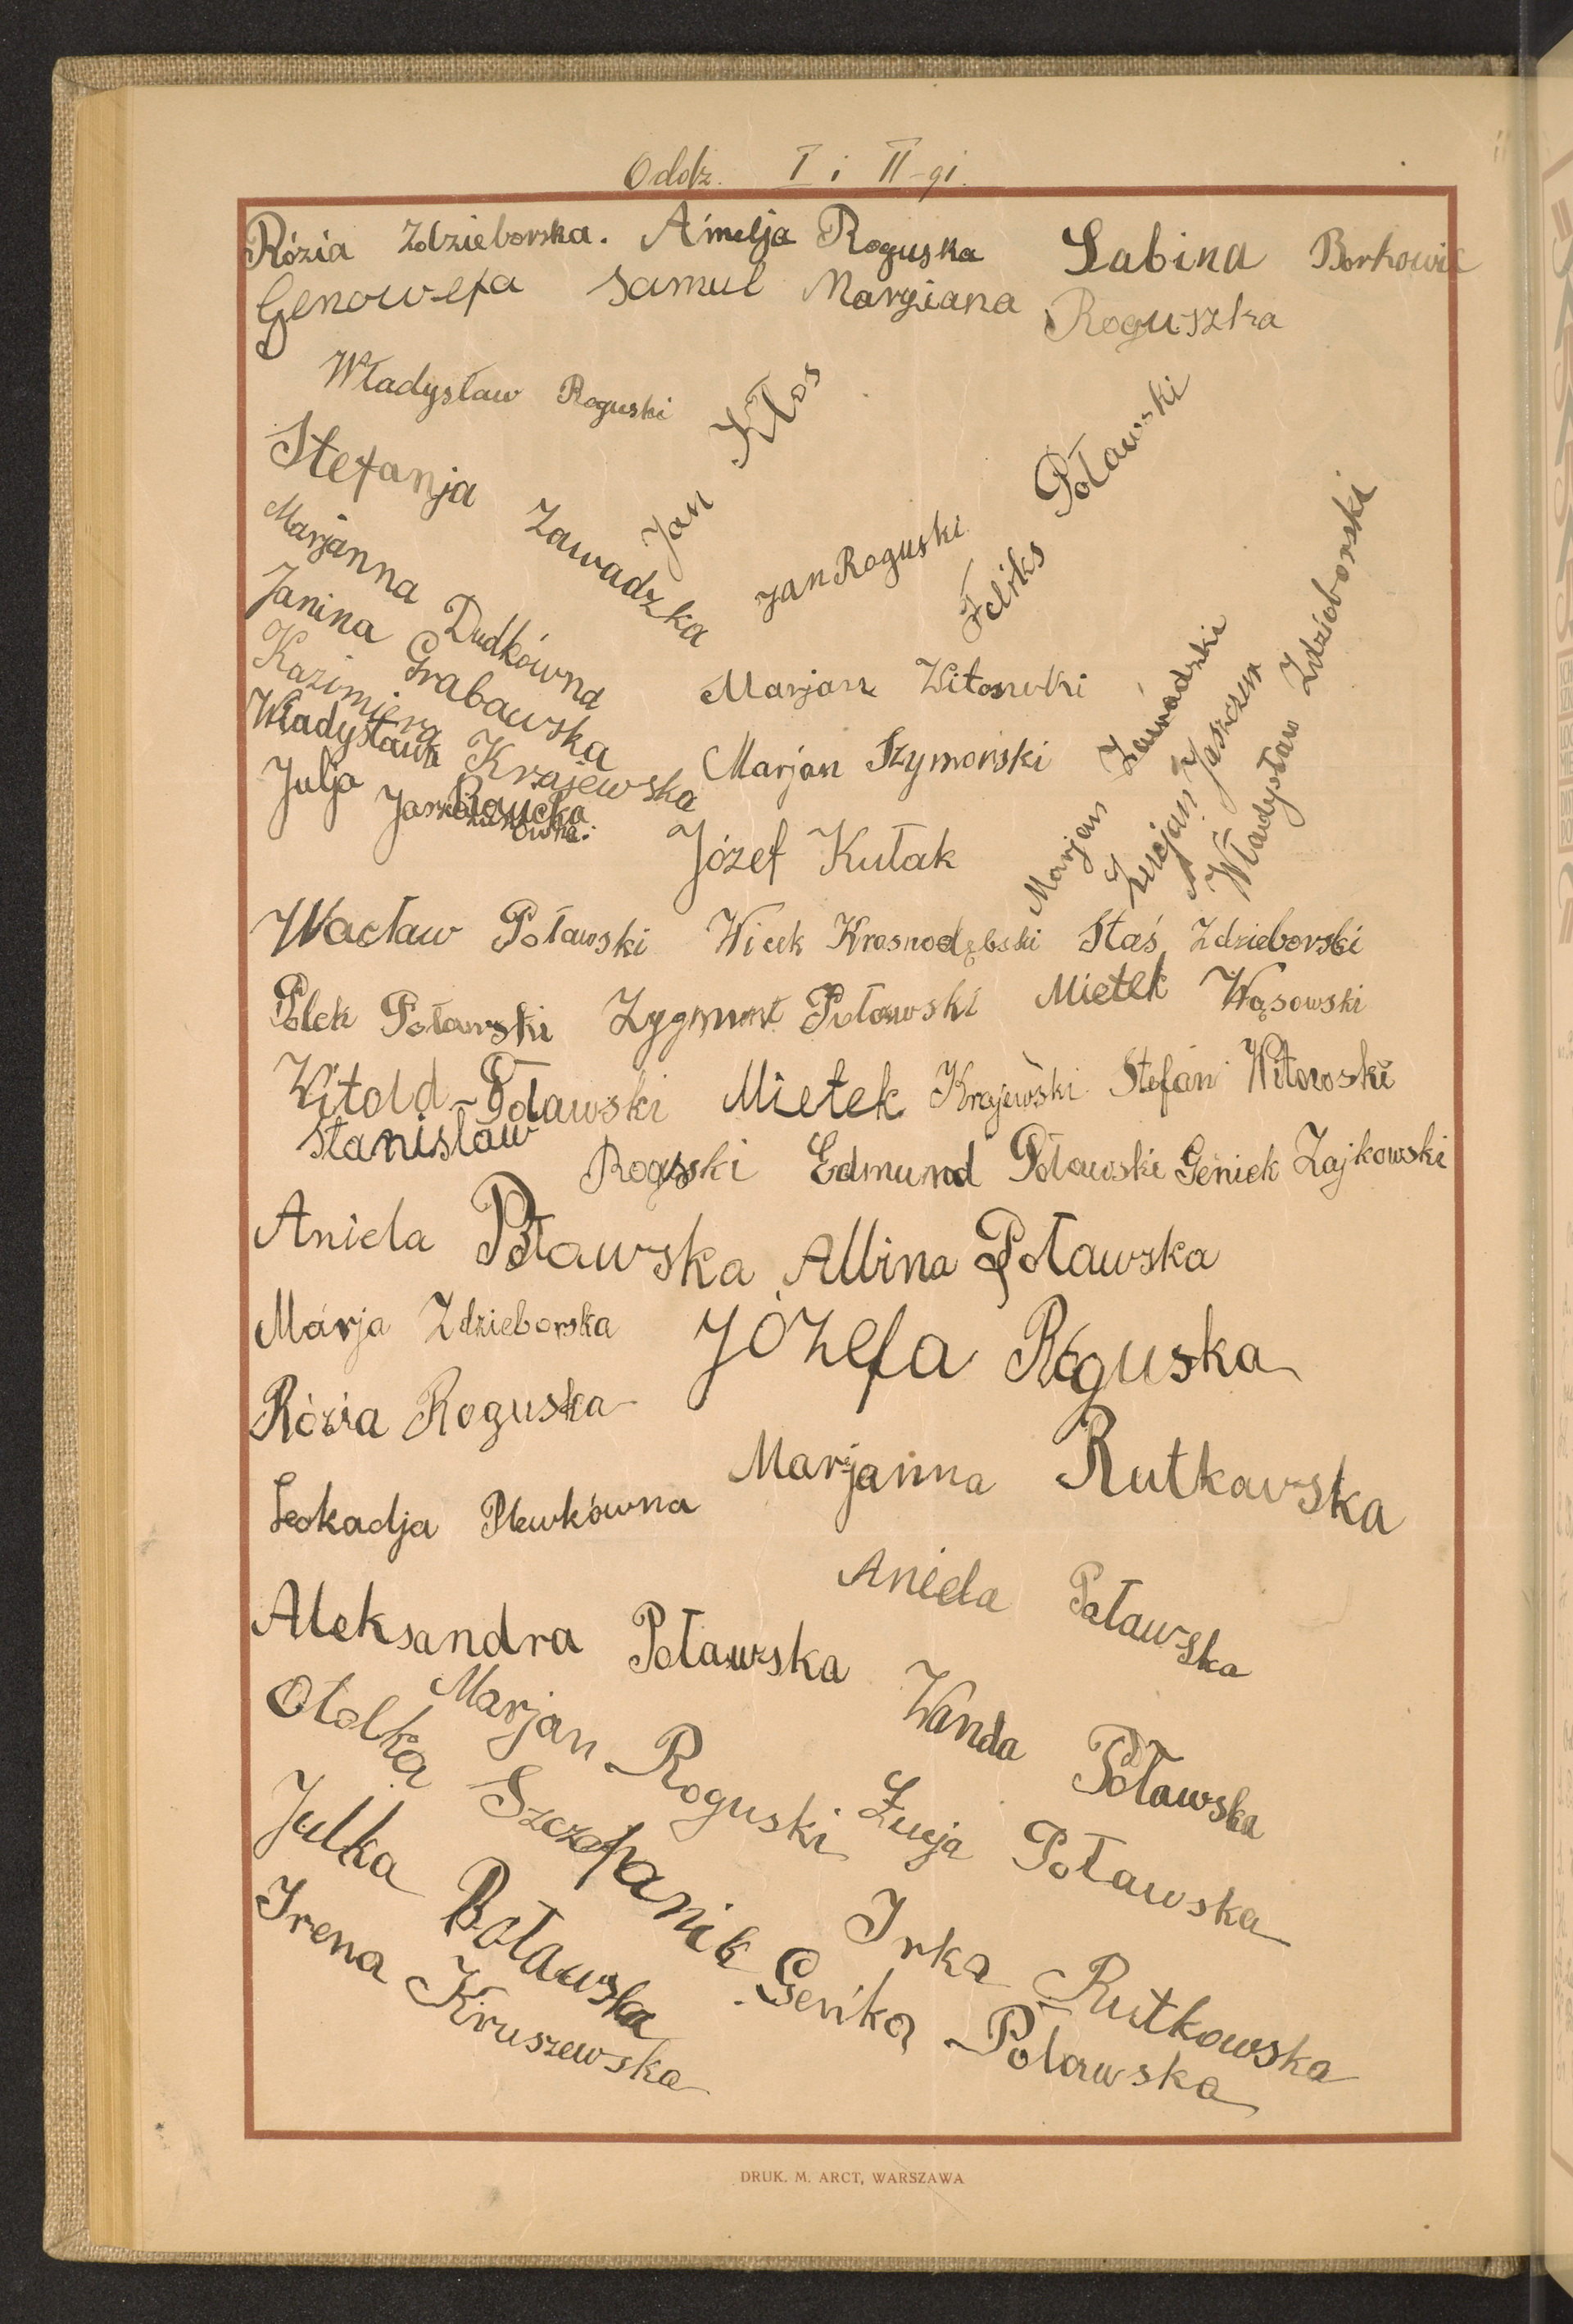 Oddz. I i II-gi.
Rózia Zdzieborska. Amelja Roguska Sabina Borkowic
Genowefa Samul Maryiana Roguszka
Władysław Roguski
Jan Kłos
Stefanja Zawadzka
Jan Roguski
Feliks Poławski
Marjanna Dudkówna
Janina Grabawska
Kazimiera Krajewska
Władysława Rawcka
Julja
Marjan Witowski
Marjan Szymański
Józef Kułak
Marjan Zawadzki
Lucjan Jaszczur
Władysław Zdzieborski
Wacław Poławski Wicek Krasnodębski Staś Zdzieborski
Polek Poławski Zygmunt Połowski Mietek Wąsowski
Witold Poławski Mietek Krajewski Stefan Witowski
Stanisław Roguski Edmund Połowski Geniek Zajkowski
Aniela Poławska Albina Poławska
Marja Zdzieborska Józefa Roguska
Rózia Roguska
Marjanna Rutkawska
Leokadja Plewkówna
Aniela Paławska
Aleksandra Poławska
Wanda Poławska
Marjan Roguski
Otolka Szczepanik
Łucja Poławska
Julka Boławska
Irka Rutkowska
Irena Kruszewska
Genka Polawska
DRUK. M. ARCT, WARSZAWA